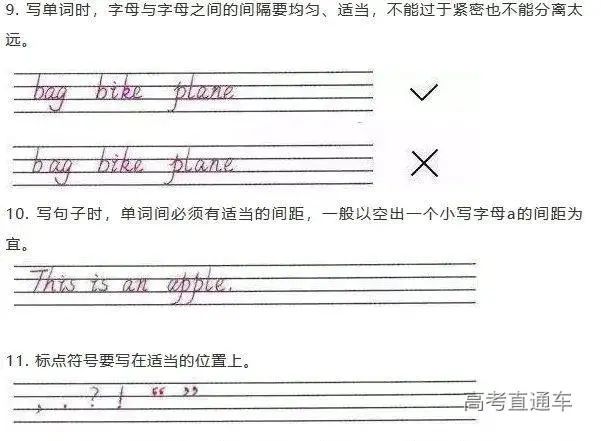 9. 写单词时，字母与字母之间的间隔要均匀、适当，不能过于紧密也不能分离太
远。
bag bike plane ✓
bag bike plane ×
10. 写句子时，单词间必须有适当的间距，一般以空出一个小写字母a的间距为
宜。
This is an apple.
11. 标点符号要写在适当的位置上。
, . ? ! “ ”
高考直通车